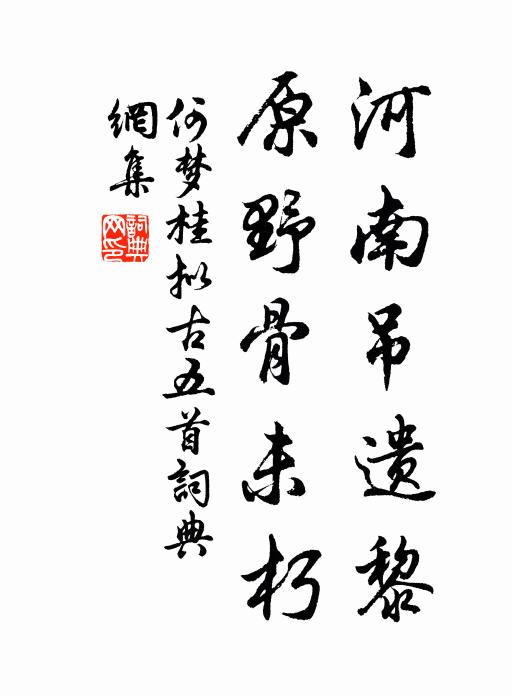 河南吊遗黎
原野骨未朽
何梦桂拟古五首詞典
網集
詞典
网印